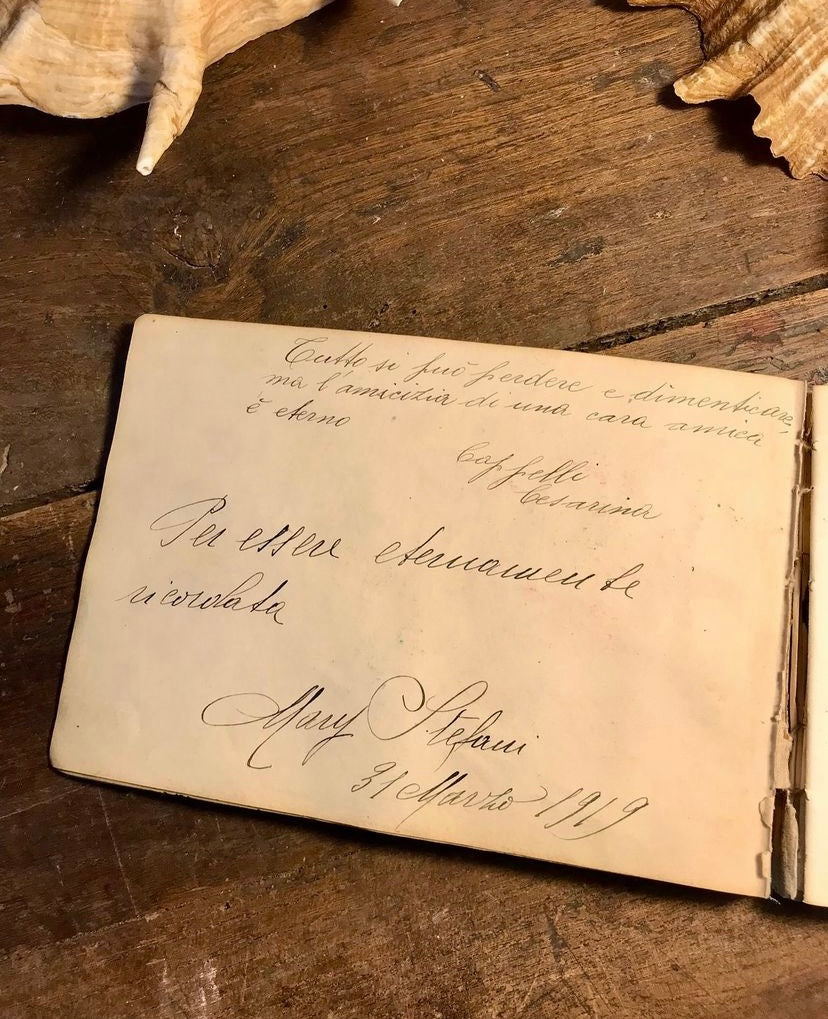 Tutto si può perdere e dimenticare,
ma l'amicizia di una cara amica
è eterno
Cappelli
Cesarina
Per essere eternamente
ricordata
Mary Stefani
31 Marzo 1919